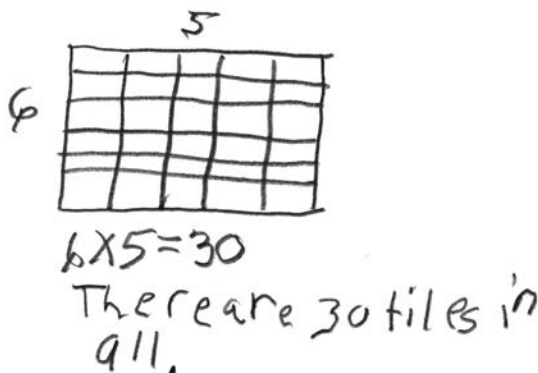 5
6
6X5=30
There are 30 tiles in
all.